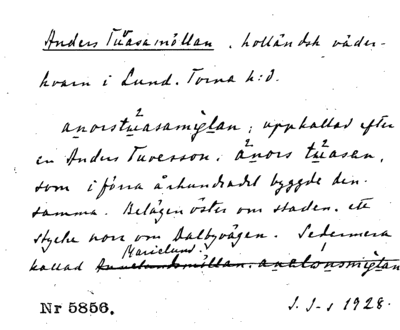 Anders Tuasamöllan, holländsk väder-
kvarn i Lund. Torna h:d.
anorstuasamiglan; uppkallad efter
en Anders Tuvesson, änors tuasan,
som i förra århundradet byggde den-
samma. Belägen öster om staden, ett
stycke norr om Dalbyvägen. Sedermera
Marielund.
kallad Annelundsmöllan. analonsmiglan
Nr 5856. J. J-s 1928.